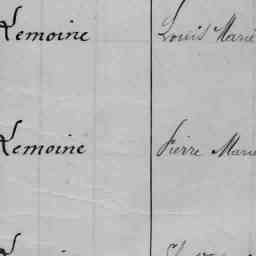 Lemoine Louis Marie
Lemoine Pierre Marie